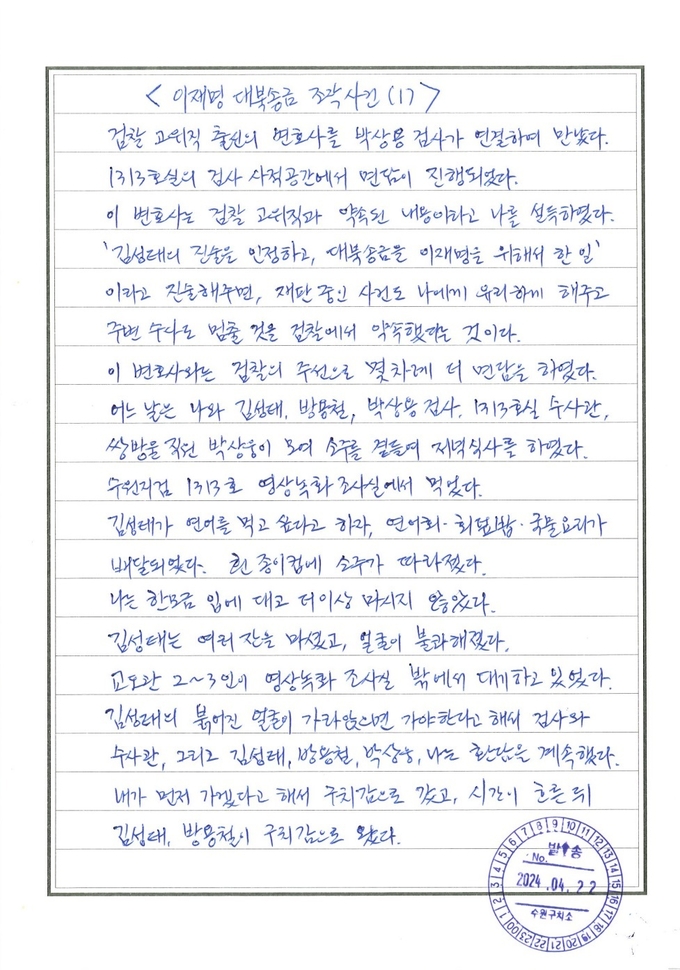 < 이재명 대북송금 조작사건 (1) >
검찰 고위직 출신의 변호사를 박상용 검사가 연결하여 만났다.
1313호실의 검사 사적공간에서 면담이 진행되었다.
이 변호사는 검찰 고위직과 약속된 내용이라고 나를 설득하였다.
'김성태의 진술을 인정하고, 대북송금을 이재명을 위해서 한 일'
이라고 진술해주면, 재판 중인 사건도 나에게 유리하게 해주고
주변 수사도 멈출 것을 검찰에서 약속했다는 것이다.
이 변호사와는 검찰의 주선으로 몇차례 더 면담을 하였다.
어느 날은 나와 김성태, 방용철, 박상용 검사, 1313호실 수사관,
쌍방울 직원 박상웅이 모여 소주를 곁들여 저녁식사를 하였다.
수원지검 1313호 영상녹화 조사실에서 먹었다.
김성태가 연어를 먹고 싶다고 하자, 연어회·회덮밥·국물요리가
배달되었다. 흰 종이컵에 소주가 따라졌다.
나는 한모금 입에 대고 더이상 마시지 않았다.
김성태는 여러 잔을 마셨고, 얼굴이 불콰해졌다.
교도관 2~3인이 영상녹화 조사실 밖에서 대기하고 있었다.
김성태의 붉어진 얼굴이 가라앉으면 가야한다고 해서 검사와
수사관, 그리고 김성태, 방용철, 박상웅, 나는 환담을 계속했다.
내가 먼저 가겠다고 해서 구치감으로 갔고, 시간이 흐른 뒤
김성태, 방용철이 구치감으로 왔다.
발송
No.
2024.04.22
수원구치소